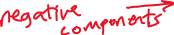 negative
components